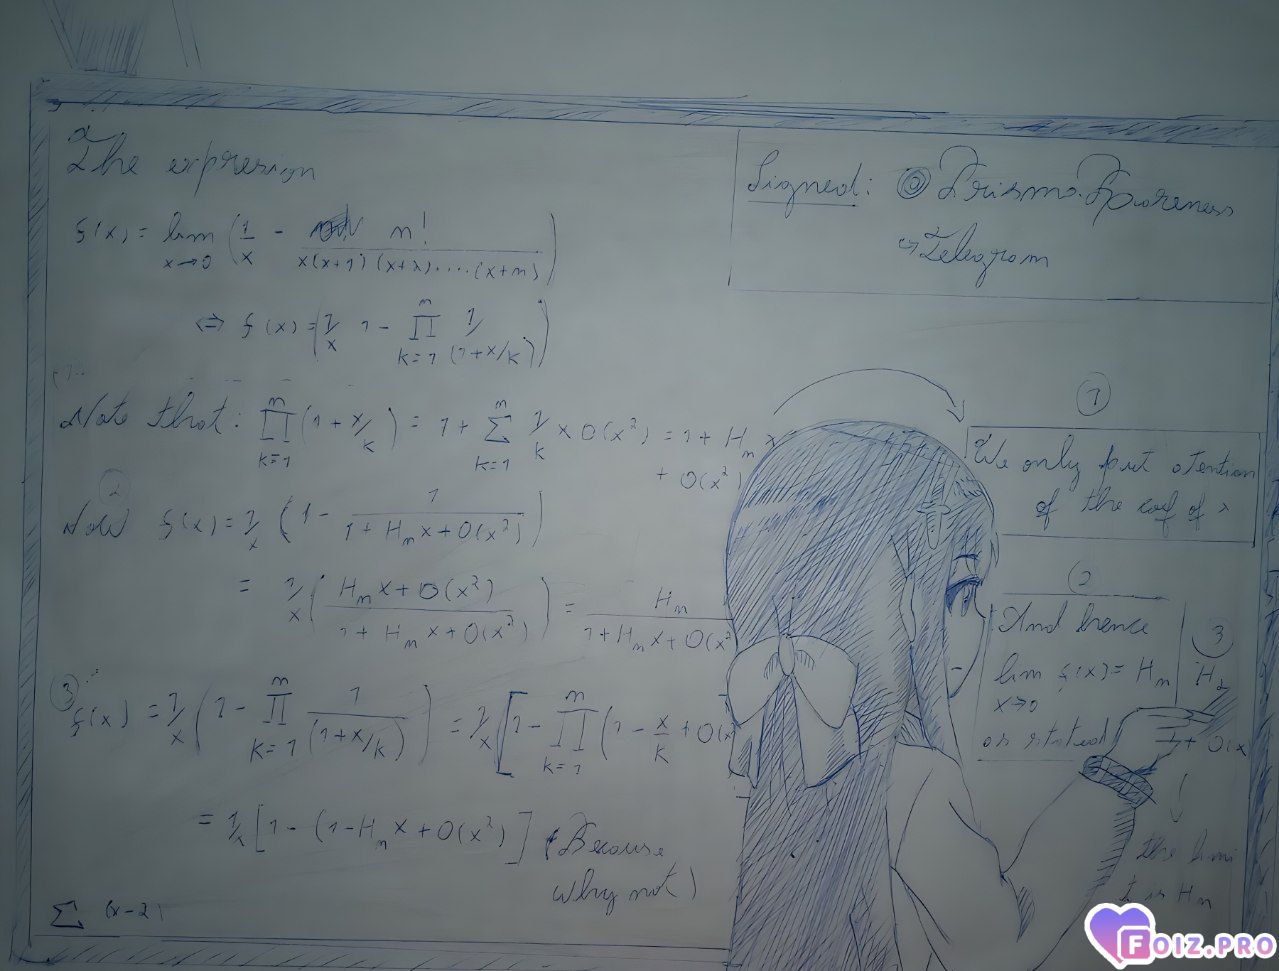 The expresion
f(x) = lim x→0 (1/x - n! / x(x+1)(x+2)....(x+n))
⇔ f(x) = (1/x 1 - ∏ k=1 n 1/(1+x/k))
Note that: ∏ k=1 n (1 + x/k) = 1 + ∑ k=1 n 1/k x O(x²) = 1 + H_n x
+ O(x²)
2
Now f(x) = 1/x (1 - 1 / 1 + H_n x + O(x²))
= 1/x (H_n x + O(x²) / 1 + H_n x + O(x²)) = H_n / 1 + H_n x + O(x²
3
f(x) = 1/x (1 - ∏ k=1 n 1/(1+x/k)) = 1/x [1 - ∏ k=1 n (1 - x/k + O(x
= 1/x [1 - (1 - H_n x + O(x²)] (Because
why not)
∑ (x-2)
Signed: @
Telegram
1
We only put atention
of the coef of x
2
And hence
lim x→0 f(x) = H_n
or stated
3
H
+ O(x
the limi
t is H_n
FOIZ.PRO